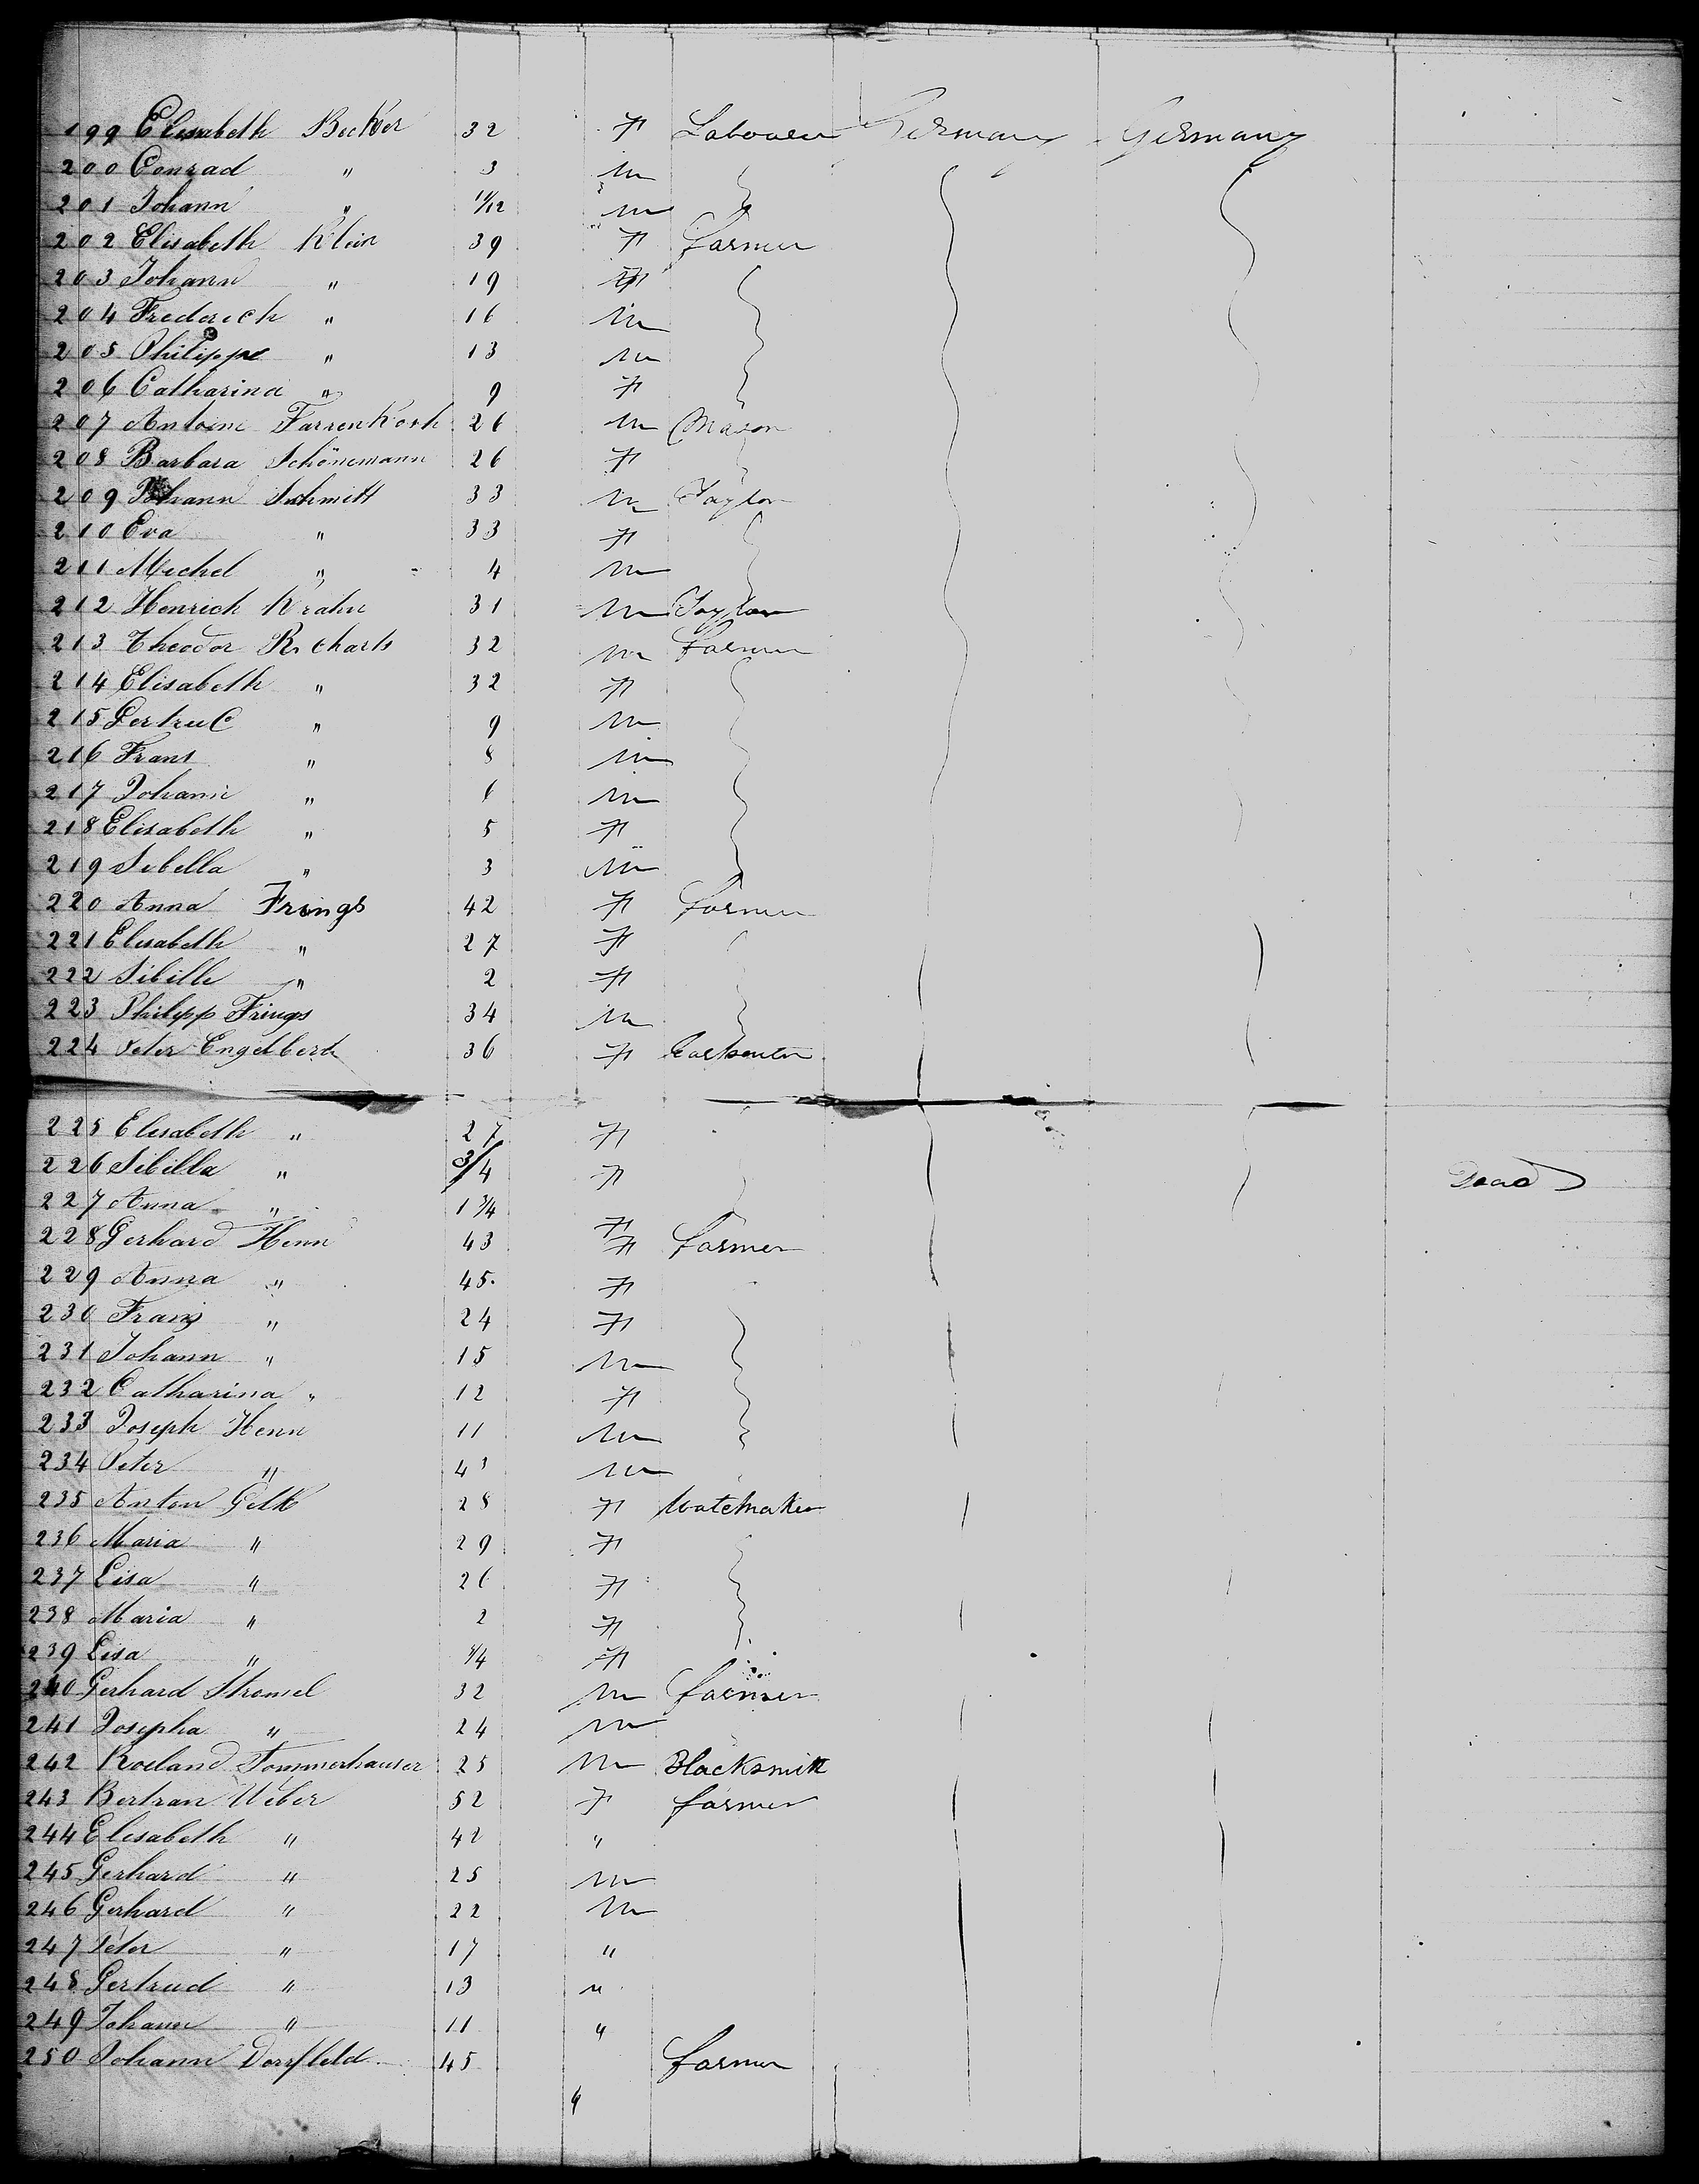 199 Elisabeth Becker 32 F Labourer Germany Germany
200 Conrad " 3 m
201 Johann " 11/12 m
202 Elisabeth Klein 39 F farmer
203 Johann " 19
204 Frederich " 16 m
205 Philippe " 13 m
206 Catharina " 9 F
207 Antoine Farrenkorh 26 m Mason
208 Barbara Schönemann 26 F
209 Johann Schmitt 33 m Taylor
210 Eva " 33 F
211 Michel " 4 m
212 Henrich Krahn 31 m Taylor
213 Theodor Richarts 32 m farmer
214 Elisabeth " 32 F
215 Gertrud " 9 m
216 Frans " 8 m
217 Johann " 6 m
218 Elisabeth " 5 F
219 Sibella " 3 m
220 Anna Frings 42 F farmer
221 Elisabeth " 27 F
222 Sibille " 2 F
223 Philipp Frings 34 m
224 Peter Engelbert 36 F Carpenter
225 Elisabeth " 27 F
226 Sibilla " 3/4 F Dead
227 Anna " 1 3/4 F
228 Gerhard Henn 43 F farmer
229 Anna " 45. F
230 Franz " 24 F
231 Johann " 15 m
232 Catharina " 12 F
233 Joseph Henn 11 m
234 Peter " 43 m
235 Anton Gelk 28 F Watchmaker
236 Maria " 29 F
237 Lisa " 26 F
238 Maria " 2 F
239 Lisa " 3/4 F
240 Gerhard Stromel 32 m farmer
241 Josepha " 24 m
242 Roeland Tommerhauser 25 m Blacksmith
243 Bertran Weber 52 F farmer
244 Elisabeth " 42 "
245 Gerhard " 25 m
246 Gerhard " 22 m
247 Peter " 17 "
248 Gertrud " 13 "
249 Johann " 11 "
250 Johann Dorrfleld 45 farmer
"